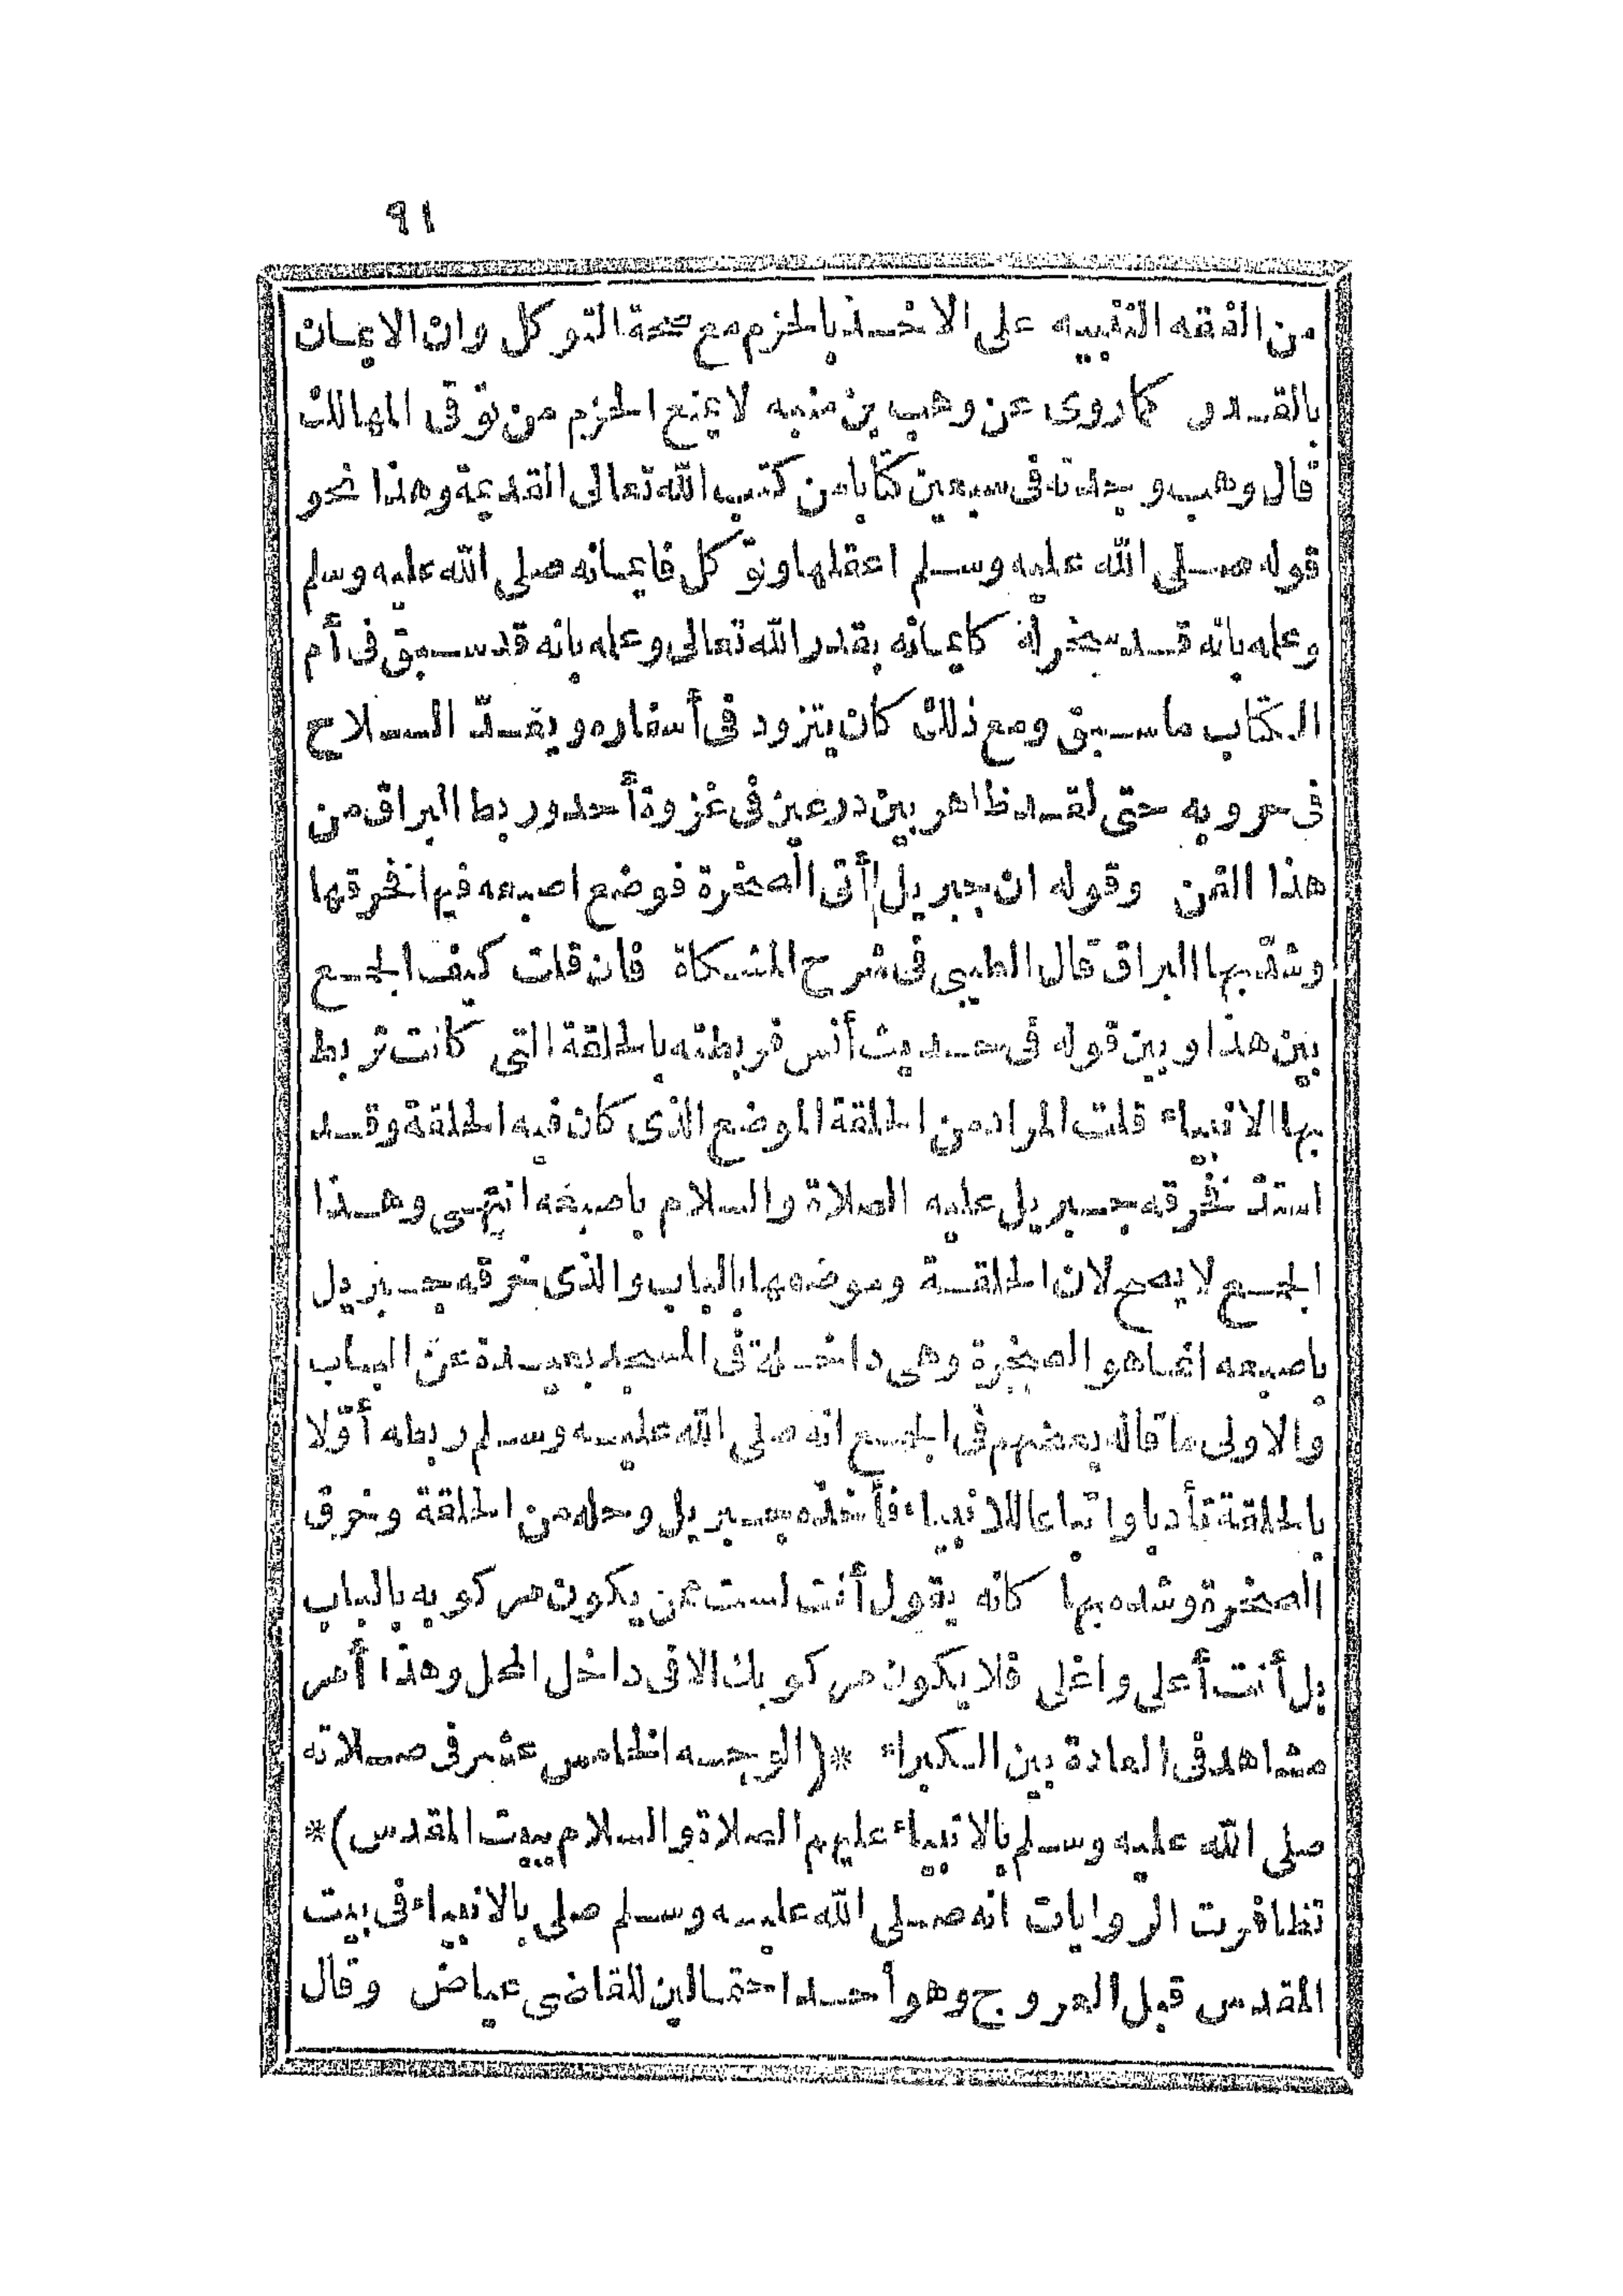 ٩١
من الفقه التنبيه على الاخذ بالحزم مع صحة التوكل وان الايمان
بالقدر كما روى عن وهب بن منبه لا يمنع الحزم من توقى المهالك
قال وهب وجدته فى سبعين كتابا من كتب الله تعالى القديمة وهذا نحو
قوله صلى الله عليه وسلم اعقلها وتوكل فايمانه صلى الله عليه وسلم
وعلمه بانه قد سخر له كايمانه بقدر الله تعالى وعلمه بانه قد سبق فى أم
الكتاب ما سبق ومع ذلك كان يتزود فى أسفاره ويعدّ السلاح
فى حروبه حتى لقد ظاهر بين درعين فى غزوة أحد وربط البراق من
هذا الفن وقوله ان جبريل أتى الصخرة فوضع اصبعه فيها فخرقها
وشدّ بها البراق قال الطيبى فى شرح المشكاة فان قلت كيف الجمع
بين هذا وبين قوله فى حديث أنس فربطته بالحلقة التى كانت تربط
بها الانبياء قلت المراد من الحلقة الموضع الذى كان فيه الحلقة وقد
استدّ فخرقه جبريل عليه الصلاة والسلام باصبعه انتهى وهذا
الجمع لا يصح لان الحلقة وموضعها بالباب والذى خرقه جبريل
باصبعه انما هو الصخرة وهى داخلة فى المسجد بعيدة عن الباب
والاولى ما قاله بعضهم فى الجمع انه صلى الله عليه وسلم ربطه أوّلا
بالحلقة تأدبا واتباعا للانبياء فأخذه جبريل وحله من الحلقة وخرق
الصخرة وشده بها كانه يقول أنت لست ممن يكون مركوبه بالباب
بل أنت أعلى واغلى فلا يكون مركوبك الا فى داخل المحل وهذا أمر
مشاهد فى العادة بين الكبراء *(الوجه الخامس عشر فى صلاته
صلى الله عليه وسلم بالانبياء عليهم الصلاة والسلام ببيت المقدس)*
تظافرت الروايات انه صلى الله عليه وسلم صلى بالانبياء فى بيت
المقدس قبل العروج وهو أحد احتمالين للقاضى عياض وقال